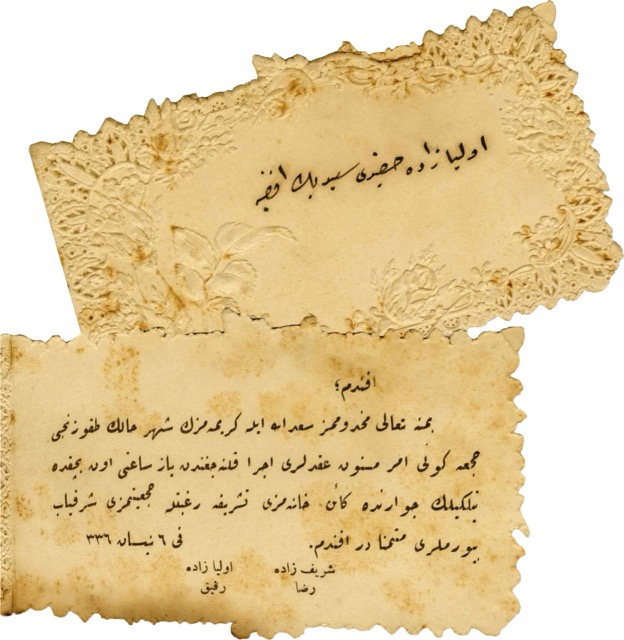 اولیا زاده حیدری سید بك افندی یه
افندم؛
بمنه تعالی مخدوممز سعدالله ایله كریمه‌مزك شهر حالك طقوزنجی
جمعه كونی امر مسنون عقدلری اجرا قلنه‌جغندن یاز ساعتی اون بچقده
جوارنده كائن خانه‌مزی تشریفه رغبتله جمعیتمزی شرفیاب
بیورملری متمنا در افندم. فی ٦ نیسان ٣٣٦
شریف زاده اولیا زاده
رضا رفیق